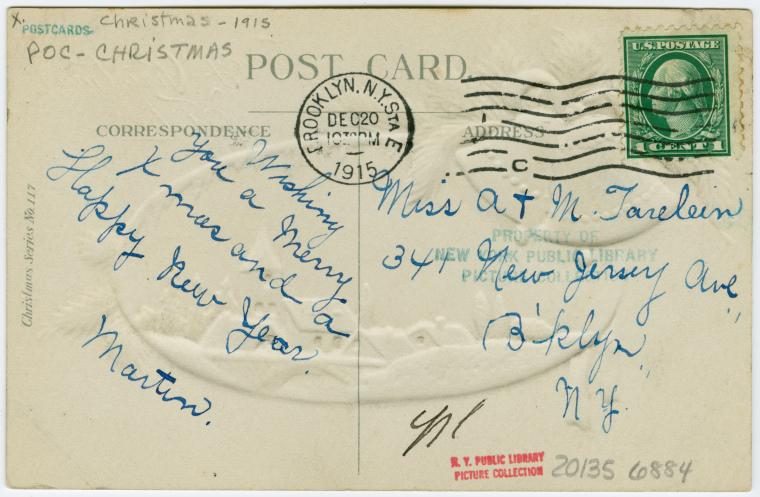 x.
POSTCARDS
Christmas - 1915
POC - CHRISTMAS
POST CARD.
U.S. POSTAGE
1 CENT 1
BROOKLYN, N.Y. STA E
DEC 20
PM
1915
C
CORRESPONDENCE
ADDRESS
Wishing
You a Merry
Xmas and a
Happy New Year.
Martin.
Miss A + M. Tarelein
341 New Jersey Ave
B'klyn
N.Y.
PROPERTY OF
NEW YORK PUBLIC LIBRARY
PICTURE COLLECTION
Christmas Series No. 117
N. Y. PUBLIC LIBRARY
PICTURE COLLECTION
20135 6884